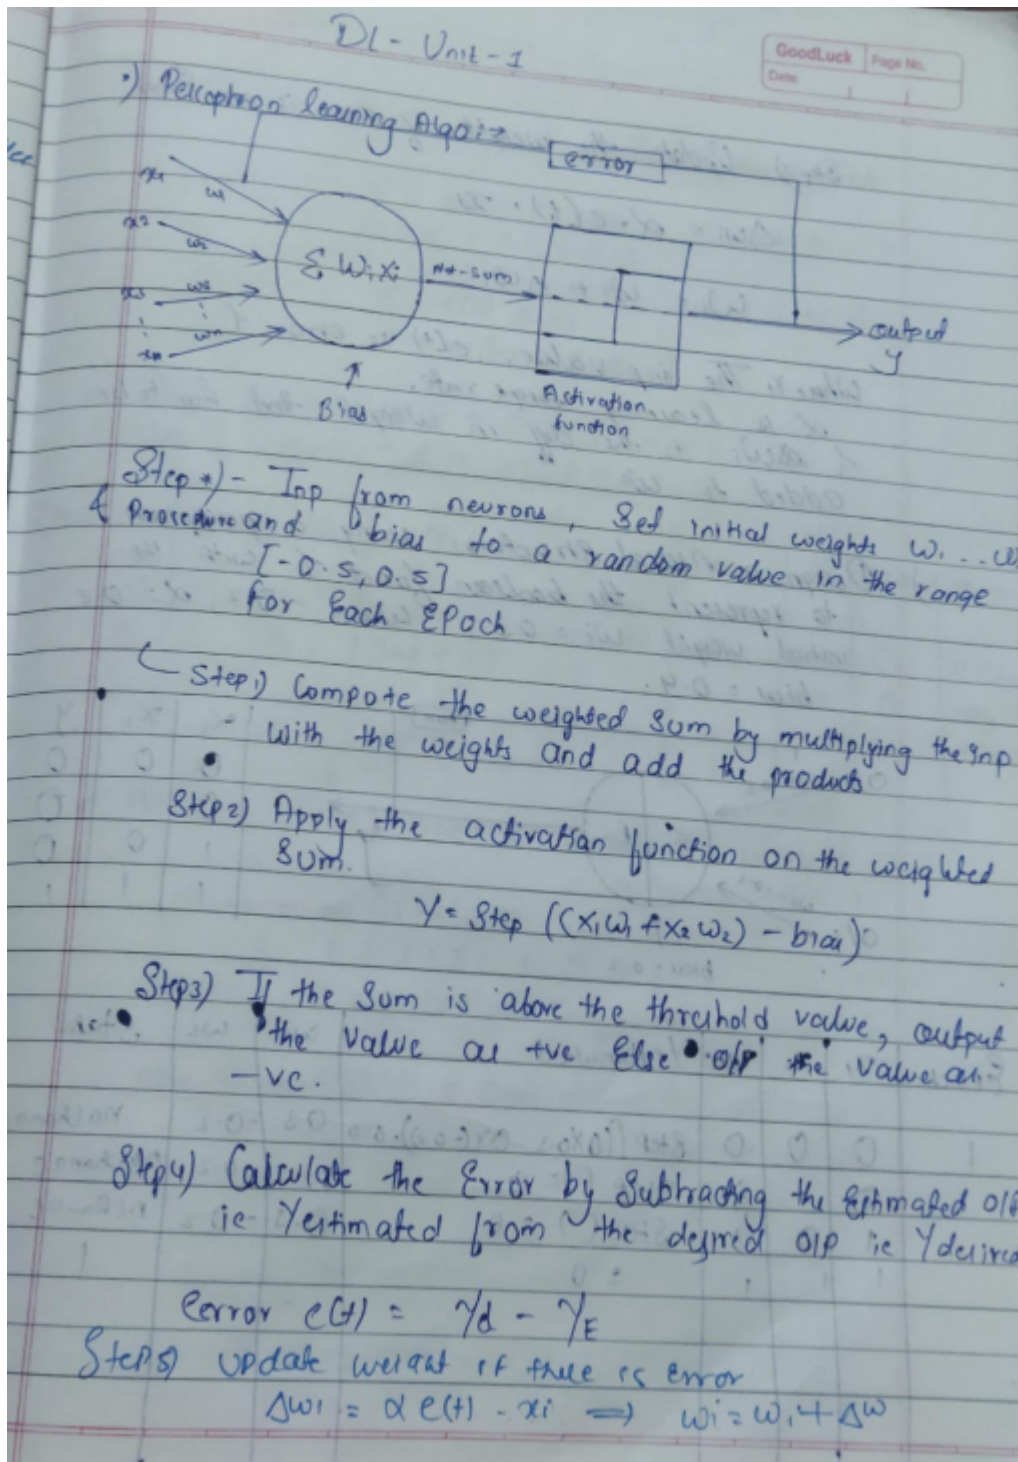 DL - Unit - 1
GoodLuck
Page No.
Date
•) Perceptron learning Algo:-
error
x1
w1
x2
w2
x3
w3
xn
wn
Σ Wi xi
Net-sum
output
y
Bias
Activation
function
Step *)- Inp from neurons, Set initial weights W1 ...
& Procedure and bias to a random value in the range
[-0.5, 0.5]
for Each EPoch
Step 1) Compute the weighted Sum by multiplying the Inp
with the weights and add the products
Step 2) Apply the activation function on the weighted
Sum.
Y = Step ((X1W1 + X2W2) - bias)
Step 3) If the Sum is above the threshold value, output
the value as +ve Else o/p the value as
-ve.
Step 4) Calculate the Error by Subtracting the Estimated o/p
ie Yestimated from the desired O/P ie Ydesired
error e(t) = Yd - YE
Step 5) update weight if there is error
Δwi = α e(t) - xi ⇒ wi = wi + Δw